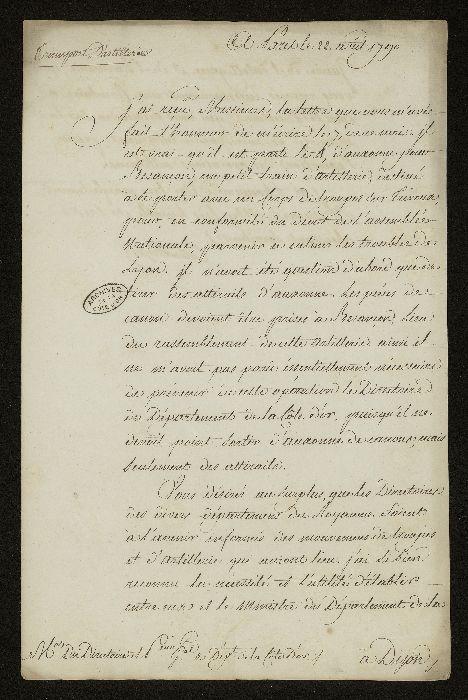 Transport d'artillerie
A Paris le 22. août 1790
J'ai reçu, Messieurs, la lettre que vous m'avés
fait l'honneur de m'écrire le 7. de ce mois. Il
est vrai qu'il est parti le 8. d'auxonne pour
Besançon un petit train d'artillerie, destiné
à se porter avec un Corps de troupes sur
pour, en conformité du décret de l'assemblée
Nationale, parvenir à calmer les troubles de
Lyon. Il n'avoit été question d'abord que de
tirer des attirails d'auxonne. Les pièces de
canon devoient être prises à Besançon, lieu
du rassemblement de cette artillerie ainsi il
ne m'avoit pas paru essentiellement nécessaire
de prévenir de cette opération le Directoire
du Département de la Côte d'or, puisqu'il ne
devoit point sortir d'auxonne de canons, mais
seulement des attirails.
ARCHIVES
DE LA
CÔTE D'OR
Vous désirés au surplus, que les Directoires
des divers départements du Royaume soient
à l'avenir informés des mouvements de troupes
et d'artillerie qui auront lieu. j'ai si bien
reconnu la nécessité et l'utilité d'établir
entre eux et le Ministre du Département de la
Mrs du Directoire et le du Dépt de la Côte d'or
à Dijon